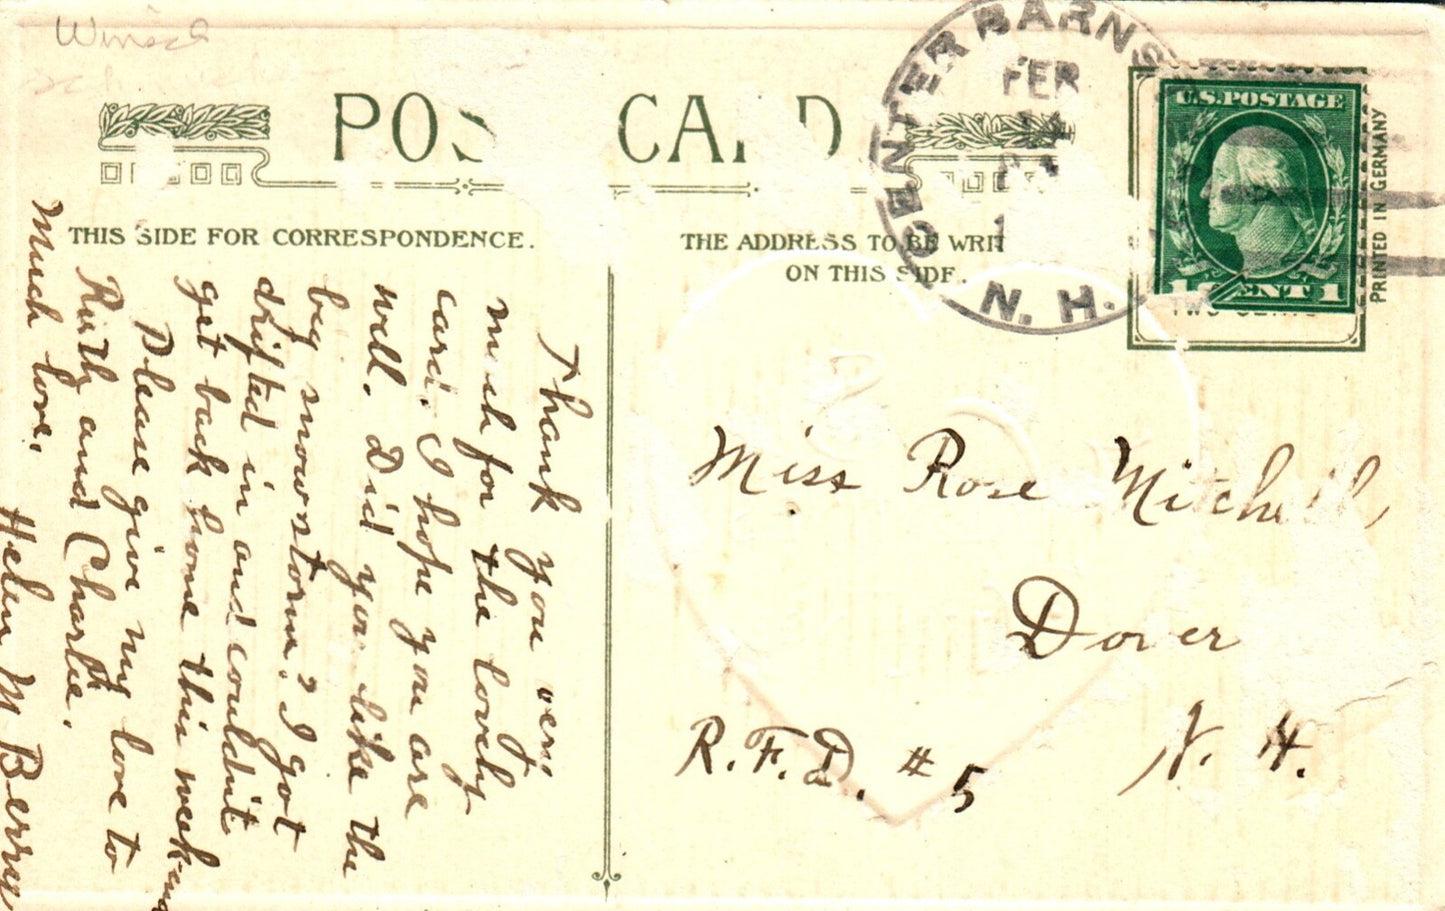 Winsch
POS CARD
THIS SIDE FOR CORRESPONDENCE.
THE ADDRESS TO BE WRIT
ON THIS SIDE.
CENTER BARNS
FEB
N. H.
U.S. POSTAGE
1 CENT 1
TWO CENTS
PRINTED IN GERMANY
Thank you very
much for the lovely
card. I hope you are
well. Did you like the
big snowstorm? I got
drifted in and couldn't
get back home this week-end
Please give my love to
Ruth and Charlie.
Much love,
Helen M Berry
Miss Rose Mitchell,
Dover
N. H.
R.F.D. # 5